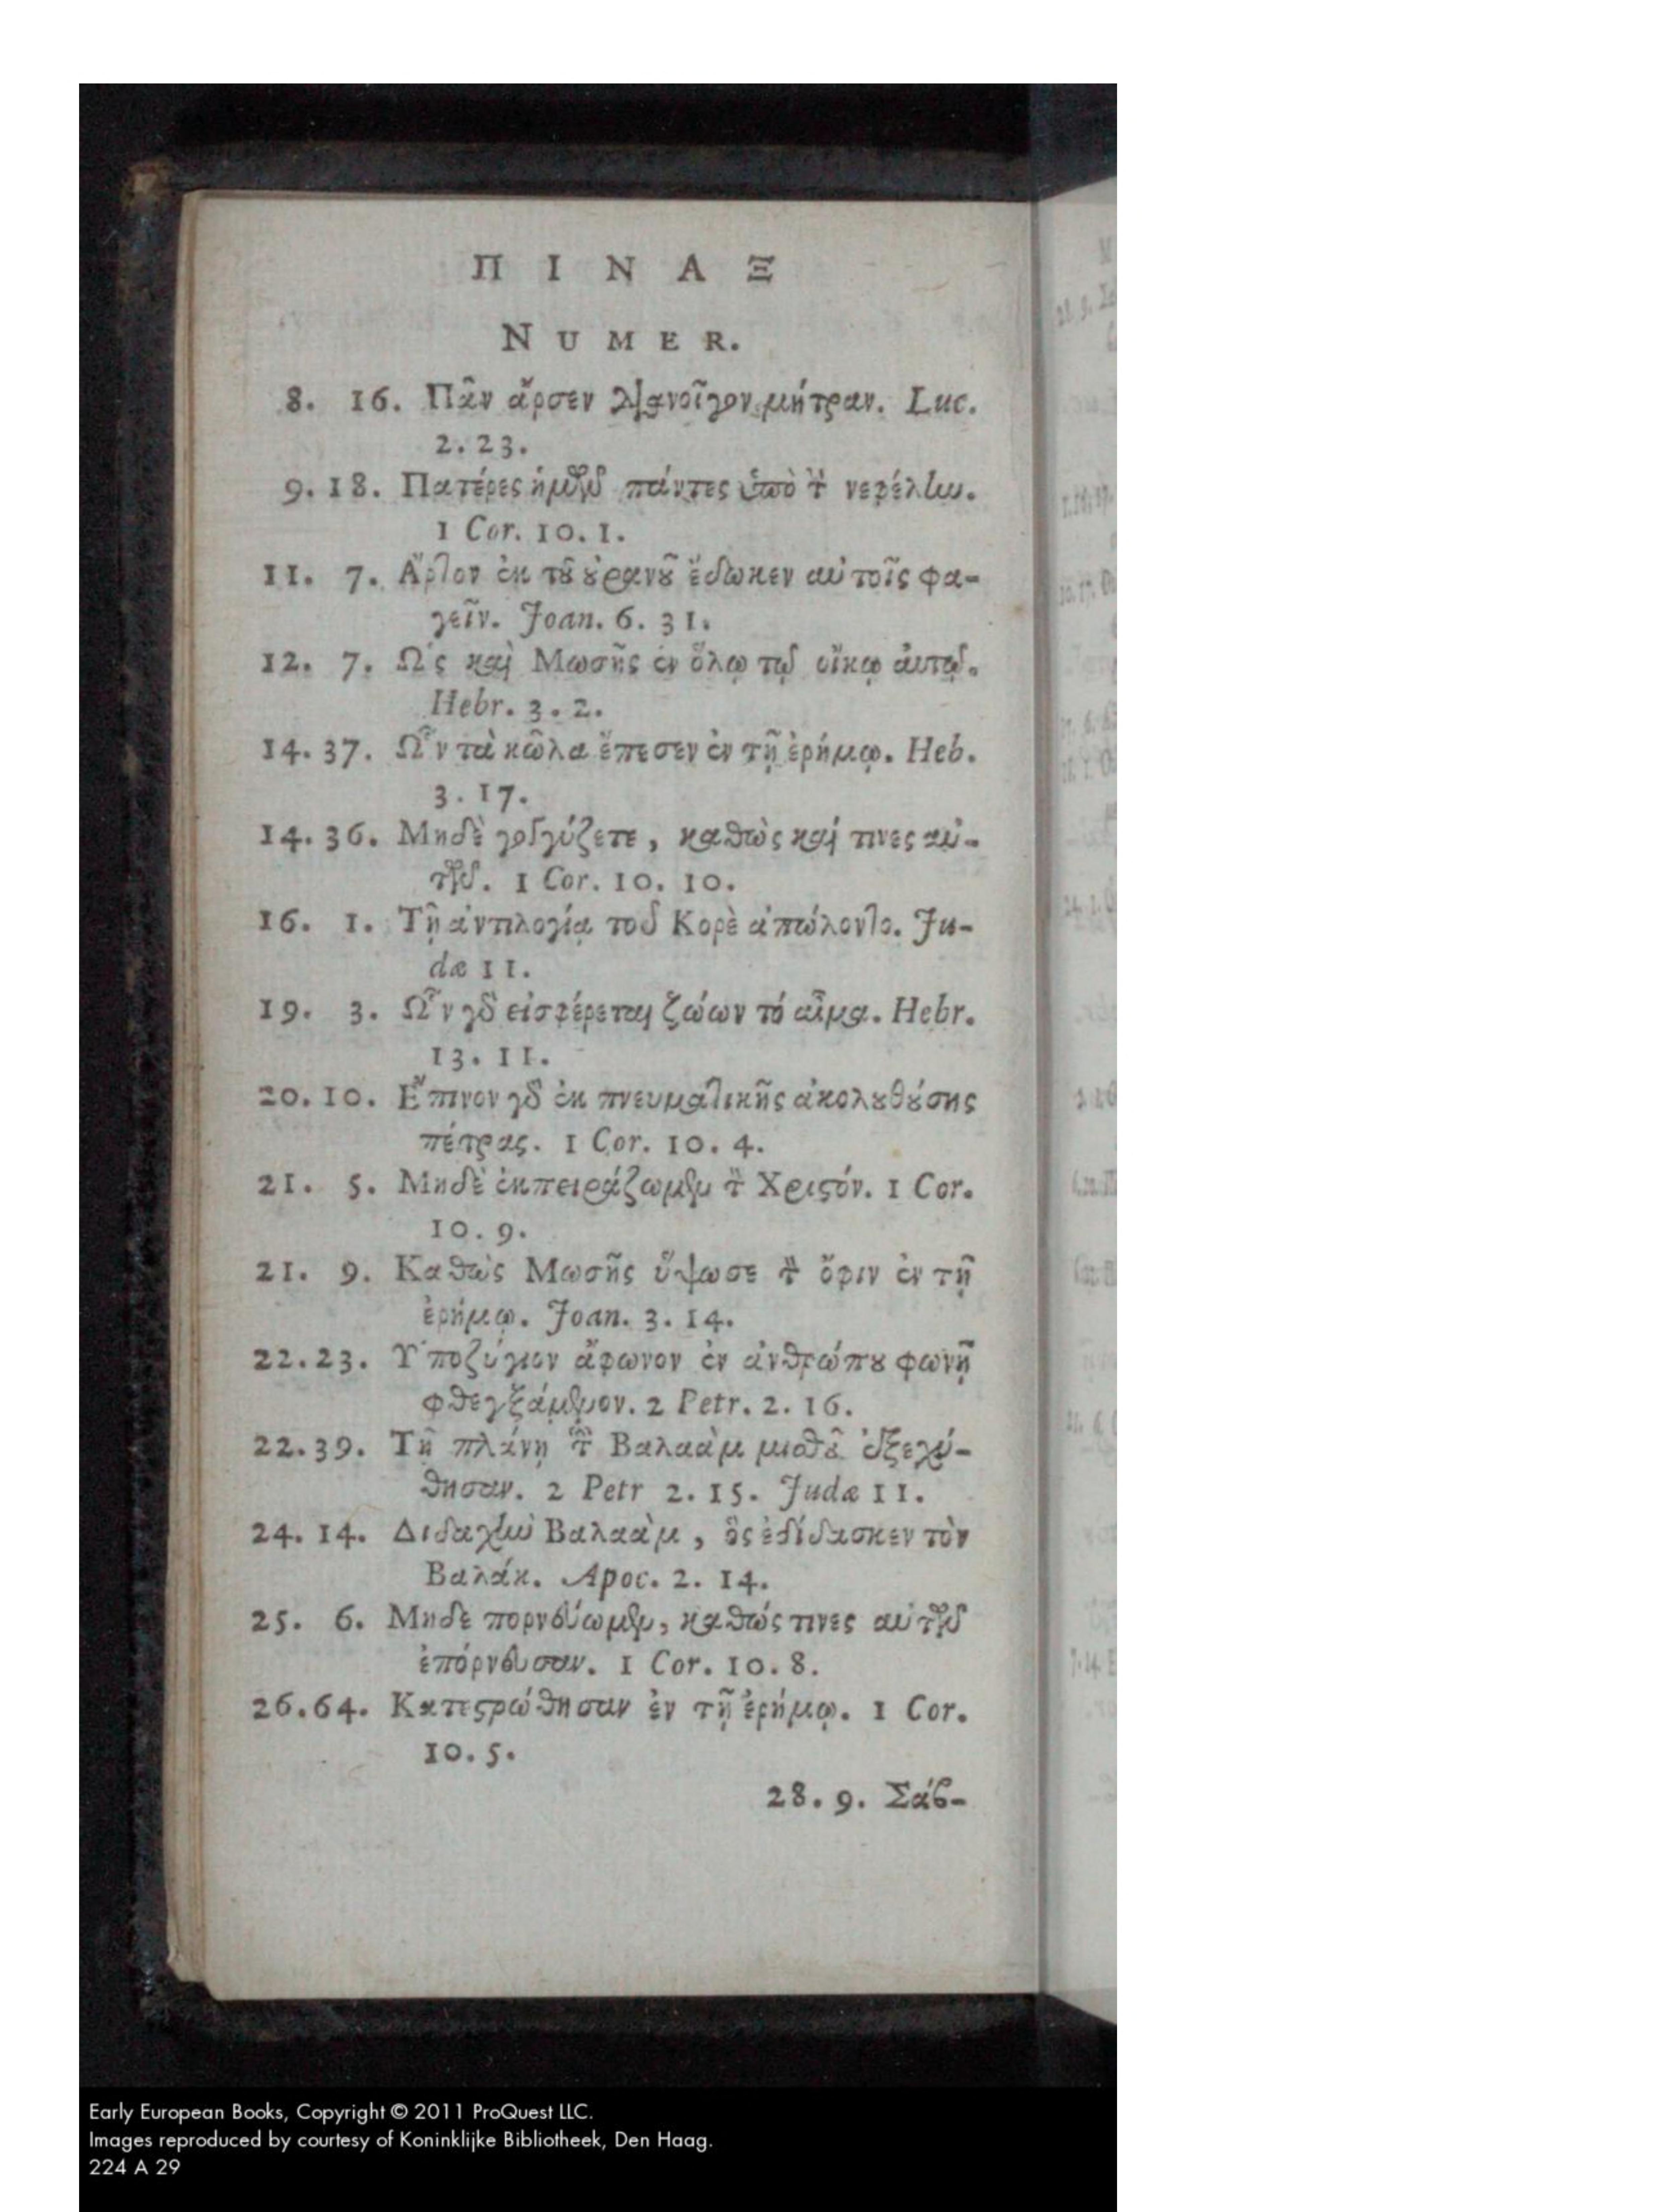 Π Ι Ν Α Ξ
NUMER.
8. 16. Πᾶν ἄρσεν διανοῖγον μήτραν. Luc.
2. 23.
9. 18. Πατέρες ἡμῶν πάντες ὑπὸ τὴν νεφέλην.
1 Cor. 10. 1.
11. 7. Ἄρτον ἐκ τοῦ οὐρανοῦ ἔδωκεν αὐτοῖς φα-
γεῖν. Joan. 6. 31.
12. 7. Ὡς καὶ Μωσῆς ἐν ὅλῳ τῷ οἴκῳ αὐτοῦ.
Hebr. 3. 2.
14. 37. Ὧν τὰ κῶλα ἔπεσεν ἐν τῇ ἐρήμῳ. Heb.
3. 17.
14. 36. Μηδὲ γογγύζετε, καθὼς καί τινες αὐ-
τῶν. 1 Cor. 10. 10.
16. 1. Τῇ ἀντιλογίᾳ τοῦ Κορὲ ἀπώλοντο. Ju-
dæ 11.
19. 3. Ὧν γὰρ εἰσφέρεται ζώων τό αἷμα. Hebr.
13. 11.
20. 10. Ἔπινον γὰρ ἐκ πνευματικῆς ἀκολουθούσης
πέτρας. 1 Cor. 10. 4.
21. 5. Μηδὲ ἐκπειράζωμεν τὸν Χριστόν. 1 Cor.
10. 9.
21. 9. Καθὼς Μωσῆς ὕψωσε τὸν ὄφιν ἐν τῇ
ἐρήμῳ. Joan. 3. 14.
22. 23. Ὑποζύγιον ἄφωνον ἐν ἀνθρώπου φωνῇ
φθεγξάμενον. 2 Petr. 2. 16.
22. 39. Τῇ πλάνῃ τοῦ Βαλαὰμ μισθοῦ ἐξεχύ-
θησαν. 2 Petr 2. 15. Judæ 11.
24. 14. Διδαχὴν Βαλαὰμ, ὃς ἐδίδασκεν τὸν
Βαλάκ. Apoc. 2. 14.
25. 6. Μηδὲ πορνεύωμεν, καθώς τινες αὐτῶν
ἐπόρνευσαν. 1 Cor. 10. 8.
26. 64. Κατεστρώθησαν ἐν τῇ ἐρήμῳ. 1 Cor.
10. 5.
28. 9. Σάβ-
Early European Books, Copyright © 2011 ProQuest LLC.
Images reproduced by courtesy of Koninklijke Bibliotheek, Den Haag.
224 A 29